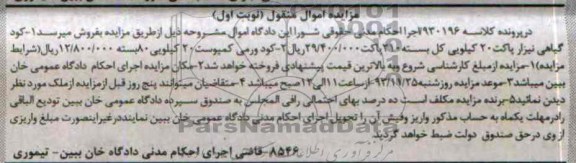 مزایده اموال منقول (نوبت اول)
درپرونده کلاسه ۹۳۰۱۹۶ اجرا احکام مدنی حقوقی شورا این دادگاه اموال مشروحه ذیل ازطریق مزایده بفروش میرسد۱-کود
گیاهی نیزار پاکت۲۰ کیلویی کل بسته ۲۱۰پاکت۲۹/۴۰۰/۰۰۰ریال۲-کود ورمی کمپوست۲۰ کیلویی ۸۰بسته ۱۲/۸۰۰/۰۰۰ریال(شرایط
مزایده)۱-مزایده ازمبلغ کارشناسی شروع وبه بالاترین قیمت پیشنهادی فروخته خواهد شد۲-مکان مزایده اجرای احکام دادگاه عمومی خان
ببین میباشد۳-موعد مزایده روزشنبه۹۳/۱۱/۲۵ ازساعت۱۱الی۱۲صبح میباشد۴-متقاضیان میتوانند پنج روز قبل ازمزایده ازملک مورد نظر
دیدن نمائید۵-برنده مزایده مکلف است ده درصد بهای احتمالی رافی المجلس به صندوق سپرده دادگاه عمومی خان ببین تودیع الباقی
رادرمهلت یکماه به حساب مذکور واریز وفیش آن را تحویل اجرای احکام مدنی دادگاه عمومی خان ببین نماینددرغیراینصورت مبلغ واریزی
از وی درحق صندوق دولت ضبط خواهد گردید
۸۵۴۶ قاضی اجرای احکام مدنی دادگاه خان ببین- تیموری
ParsNamadData